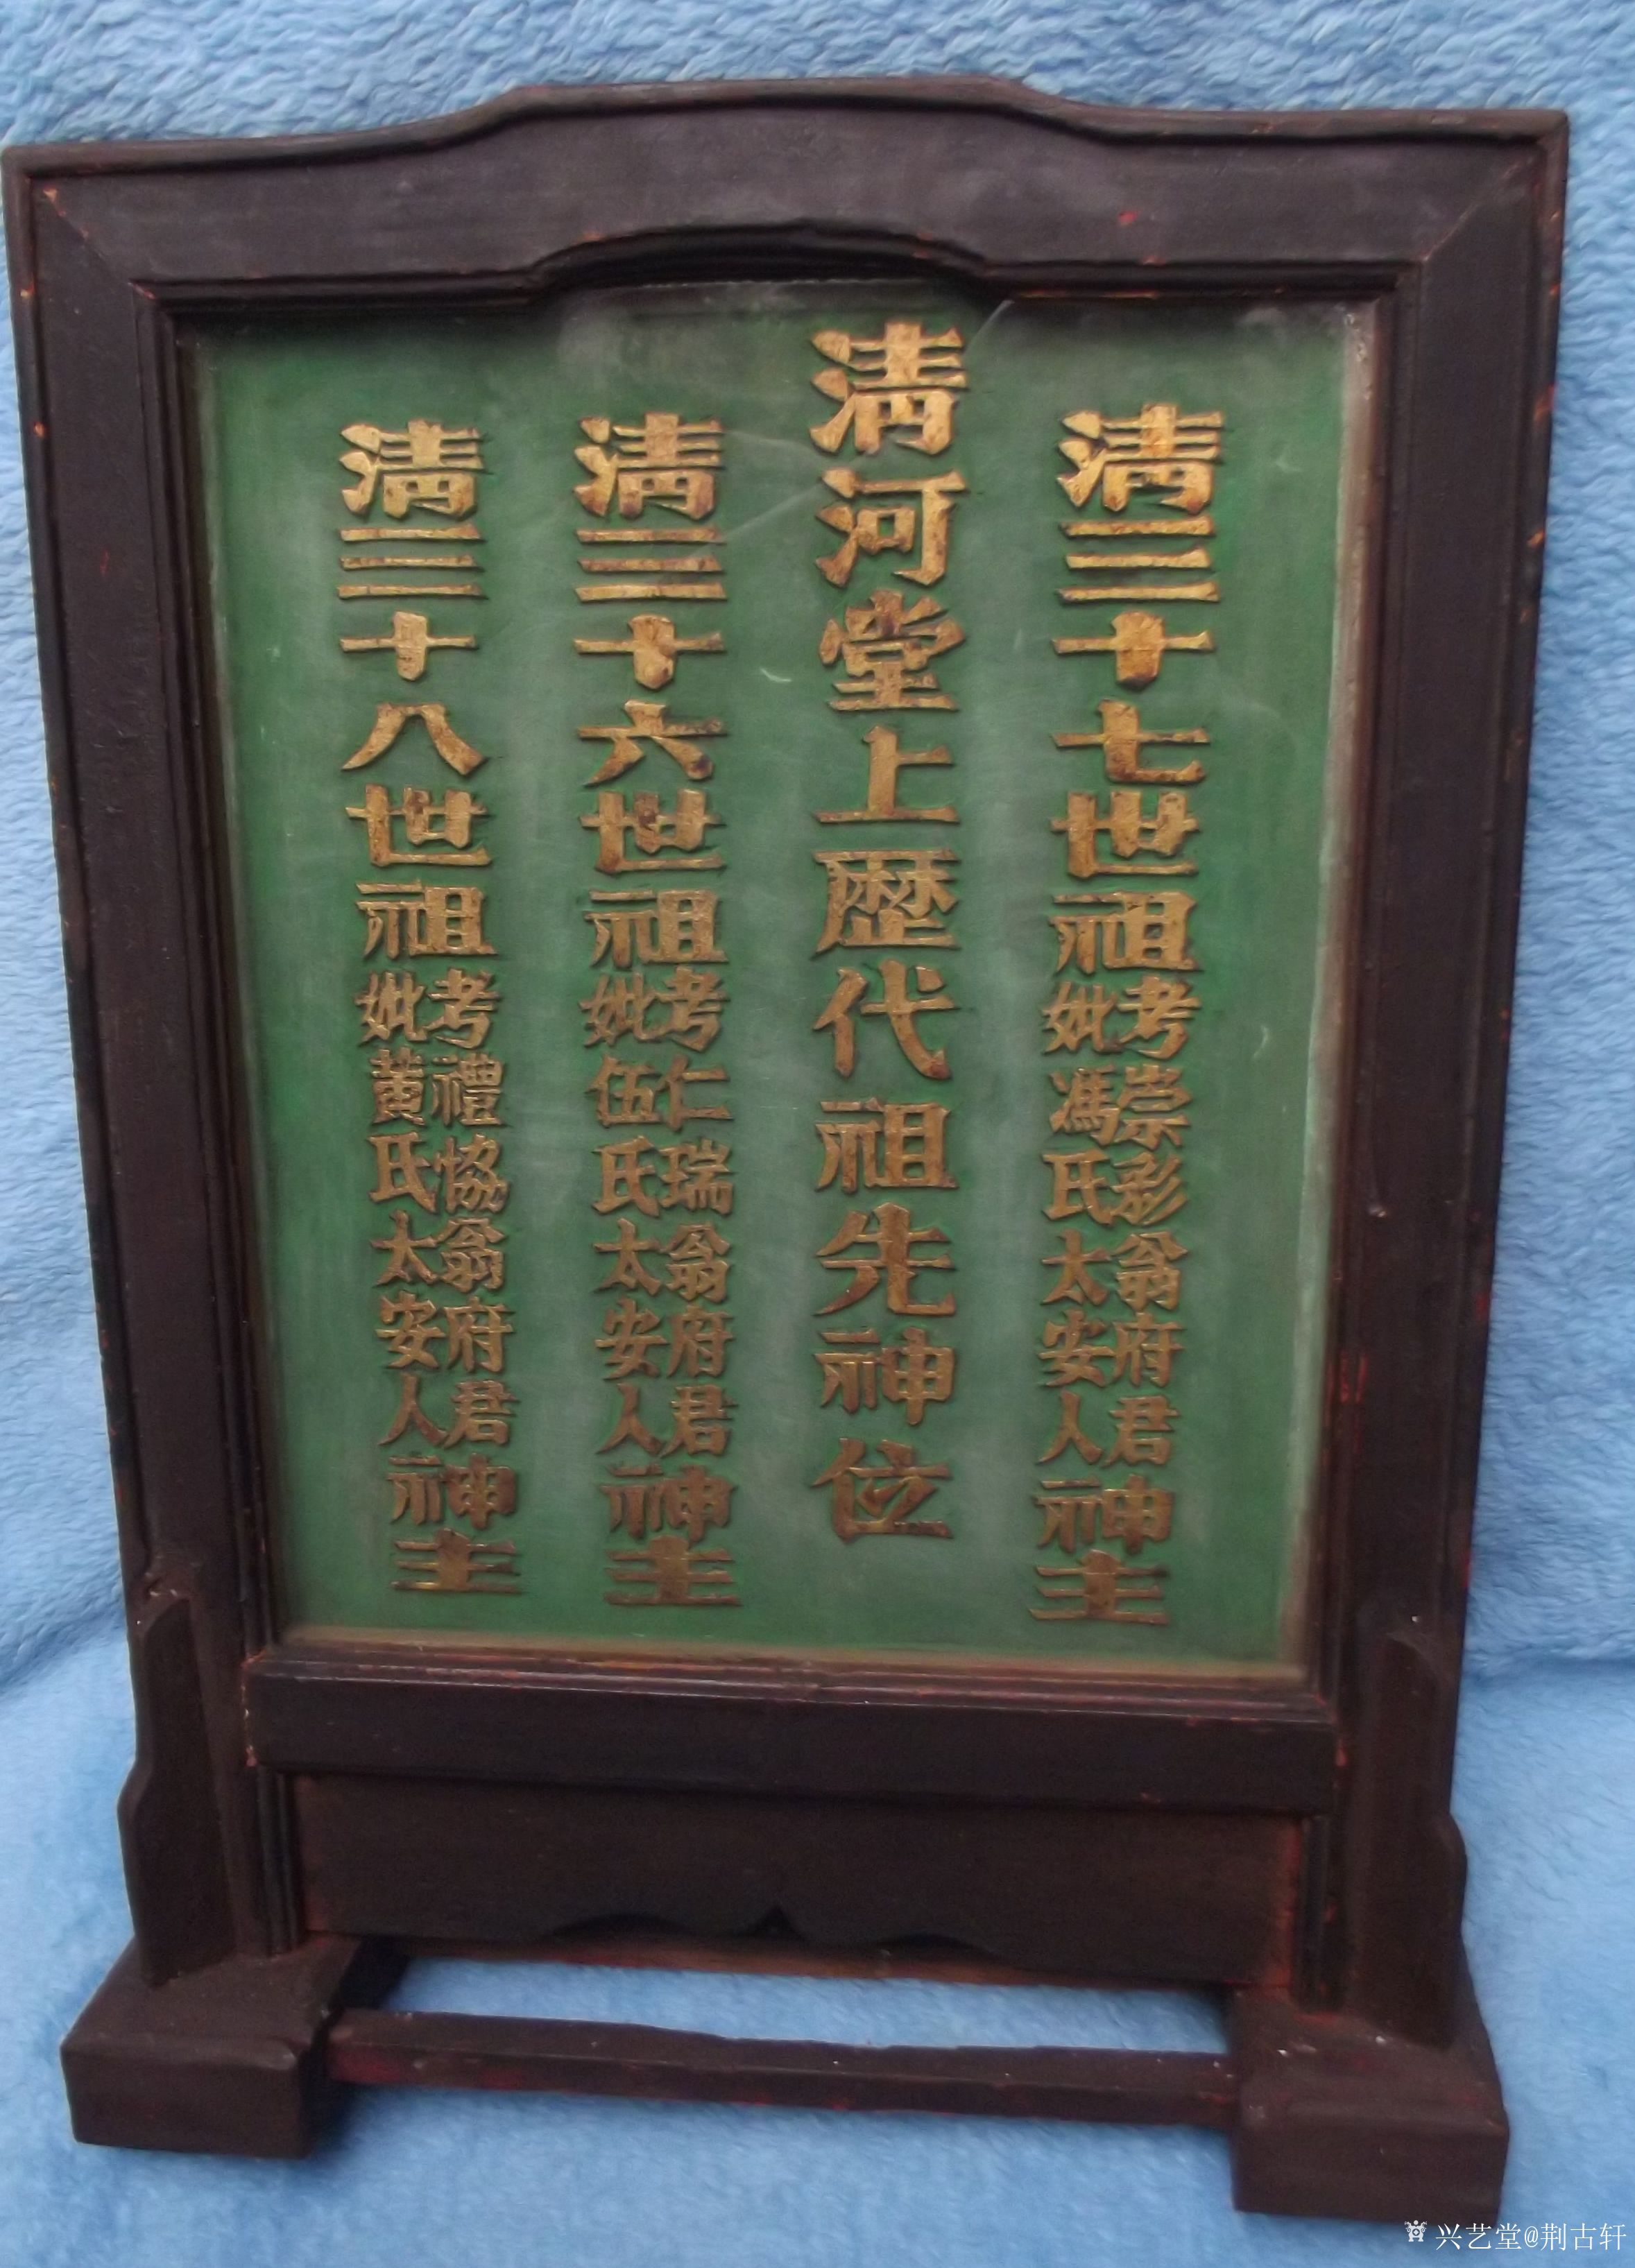 清三十七世祖考崇彩翁府君妣馮氏太安人神主
清河堂上歷代祖先神位
清三十六世祖考仁瑞翁府君妣伍氏太安人神主
清三十八世祖考禮恊翁府君妣黃氏太安人神主
兴艺堂@荆古轩